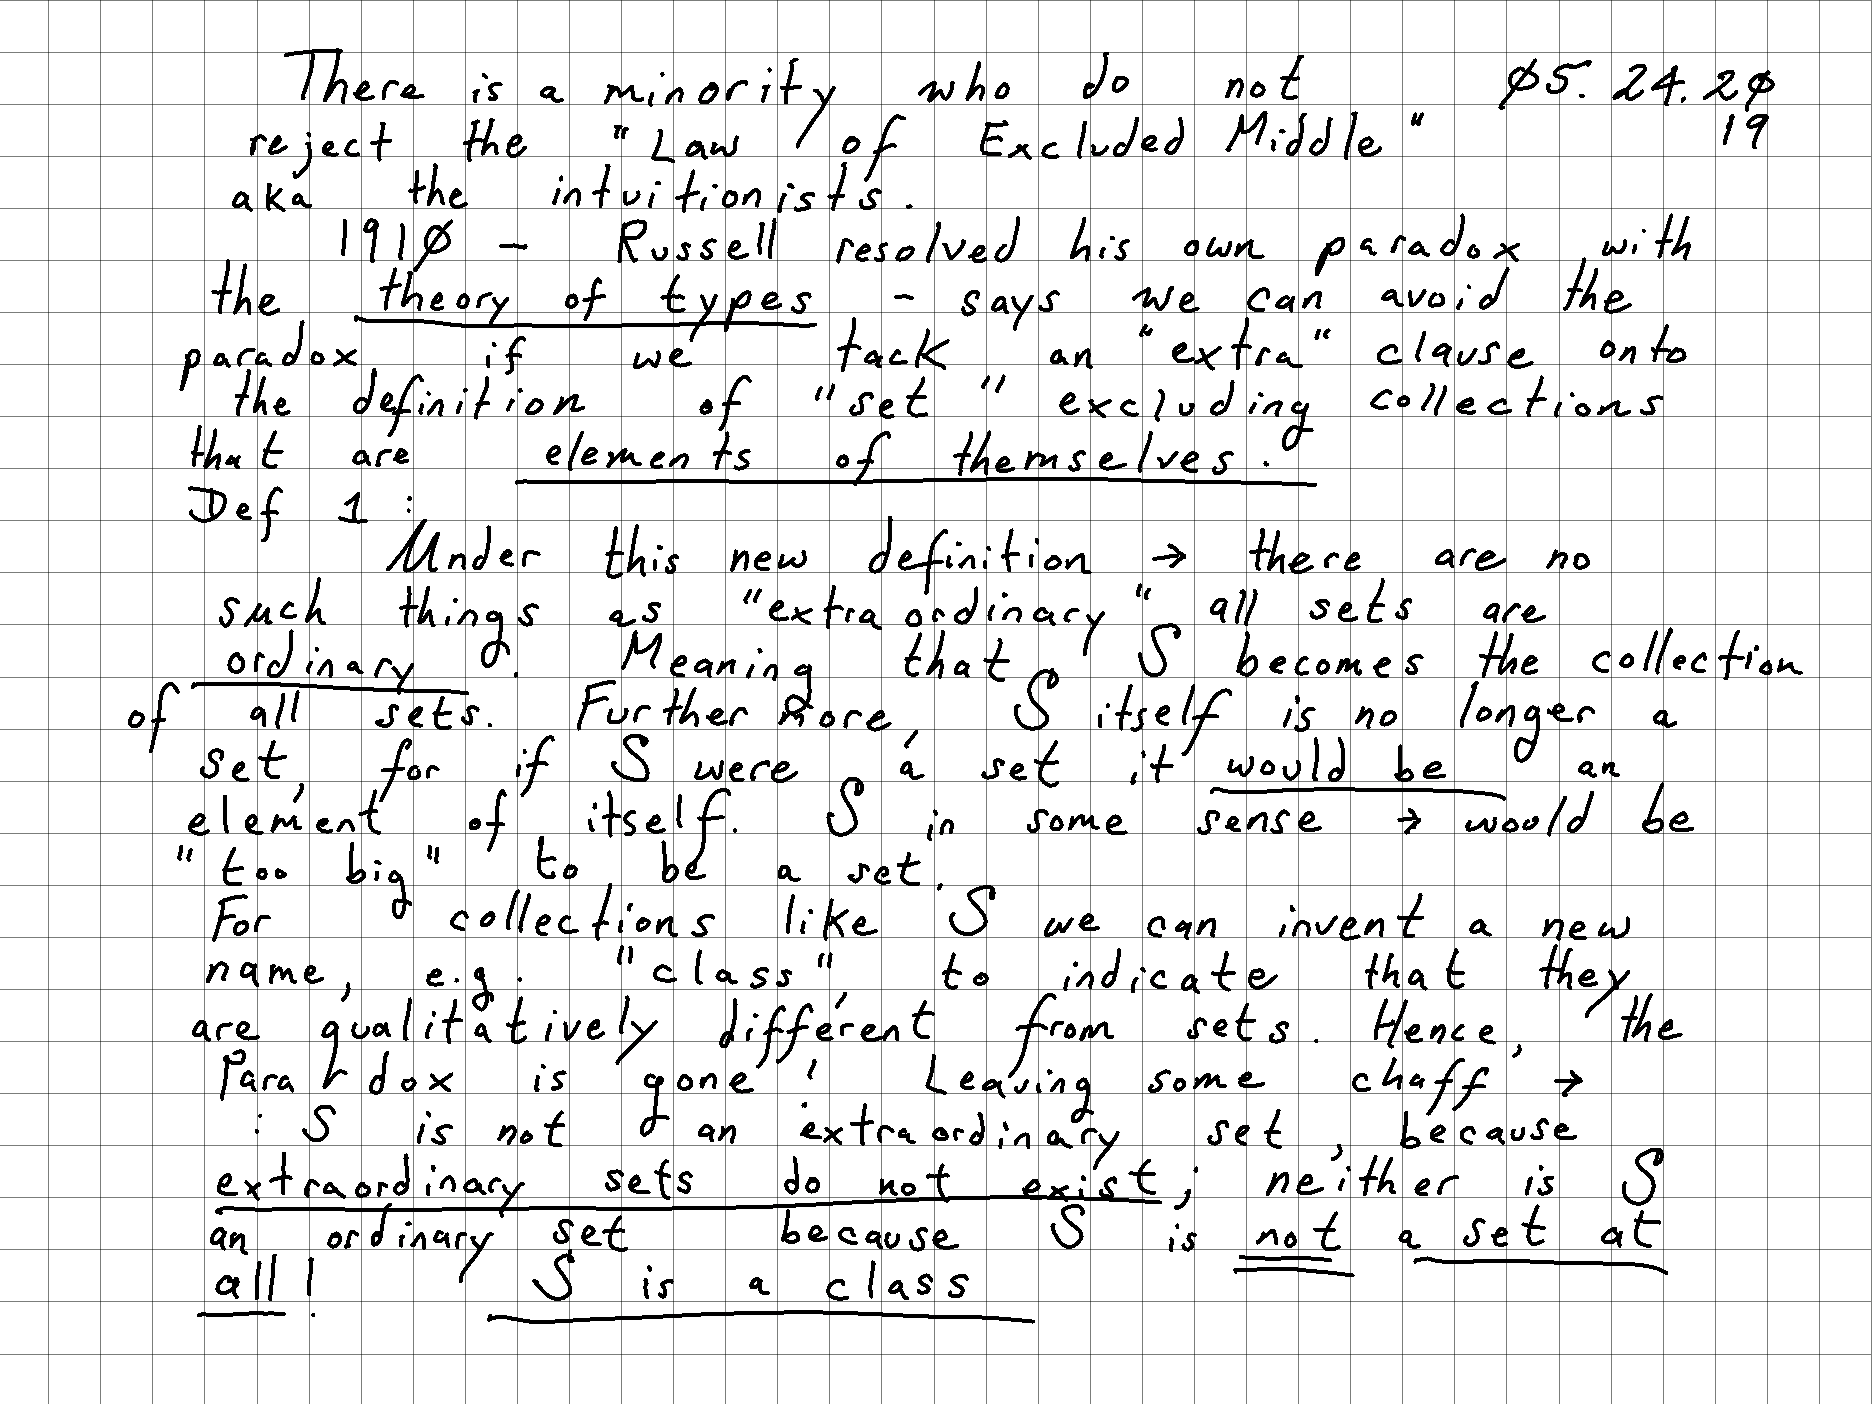 There is a minority who do not Ø5. 24. 2Ø
reject the "Law of Excluded Middle" 19
aka the intuitionists.
191Ø - Russell resolved his own paradox with
the theory of types - says we can avoid the
paradox if we tack an "extra" clause onto
the definition of "set" excluding collections
that are elements of themselves.
Def 1 :
Under this new definition → there are no
such things as "extraordinary" all sets are
ordinary. Meaning that S becomes the collection
of all sets. Furthermore, S itself is no longer a
set, for if S were a set it would be an
element of itself. S in some sense → would be
"too big" to be a set.
For collections like S we can invent a new
name, e.g. "class", to indicate that they
are qualitatively different from sets. Hence, the
Paradox is gone! Leaving some chaff →
: S is not an extraordinary set, because
extraordinary sets do not exist; neither is S
an ordinary set because S is not a set at
all! S is a class